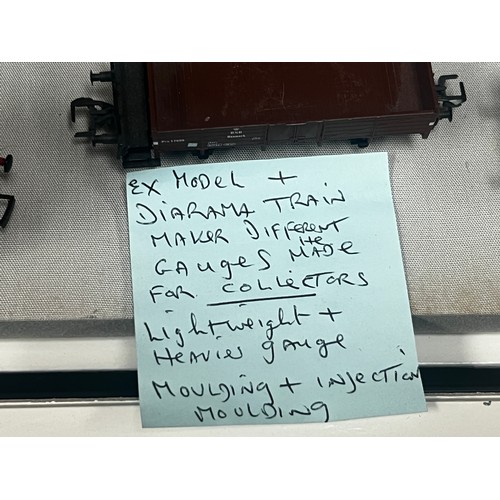 EX MODEL +
DIARAMA TRAIN
MAKER DIFFERENT
GAUGES HE MADE
FOR COLLECTORS
Lightweight +
HEAVIER gauge
MOULDING + INJECTION
MOULDING